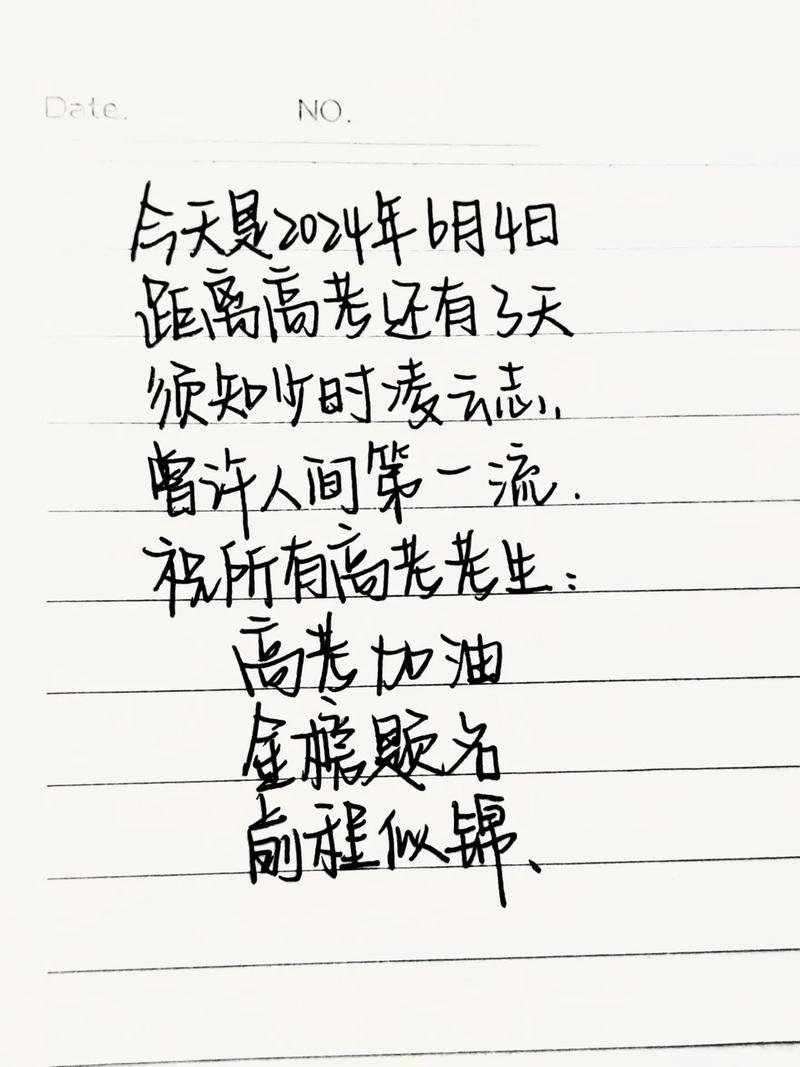 Date. NO.
今天是2024年6月4日
距离高考还有3天
须知少时凌云志,
曾许人间第一流.
祝所有高考考生:
高考加油
金榜题名
前程似锦、